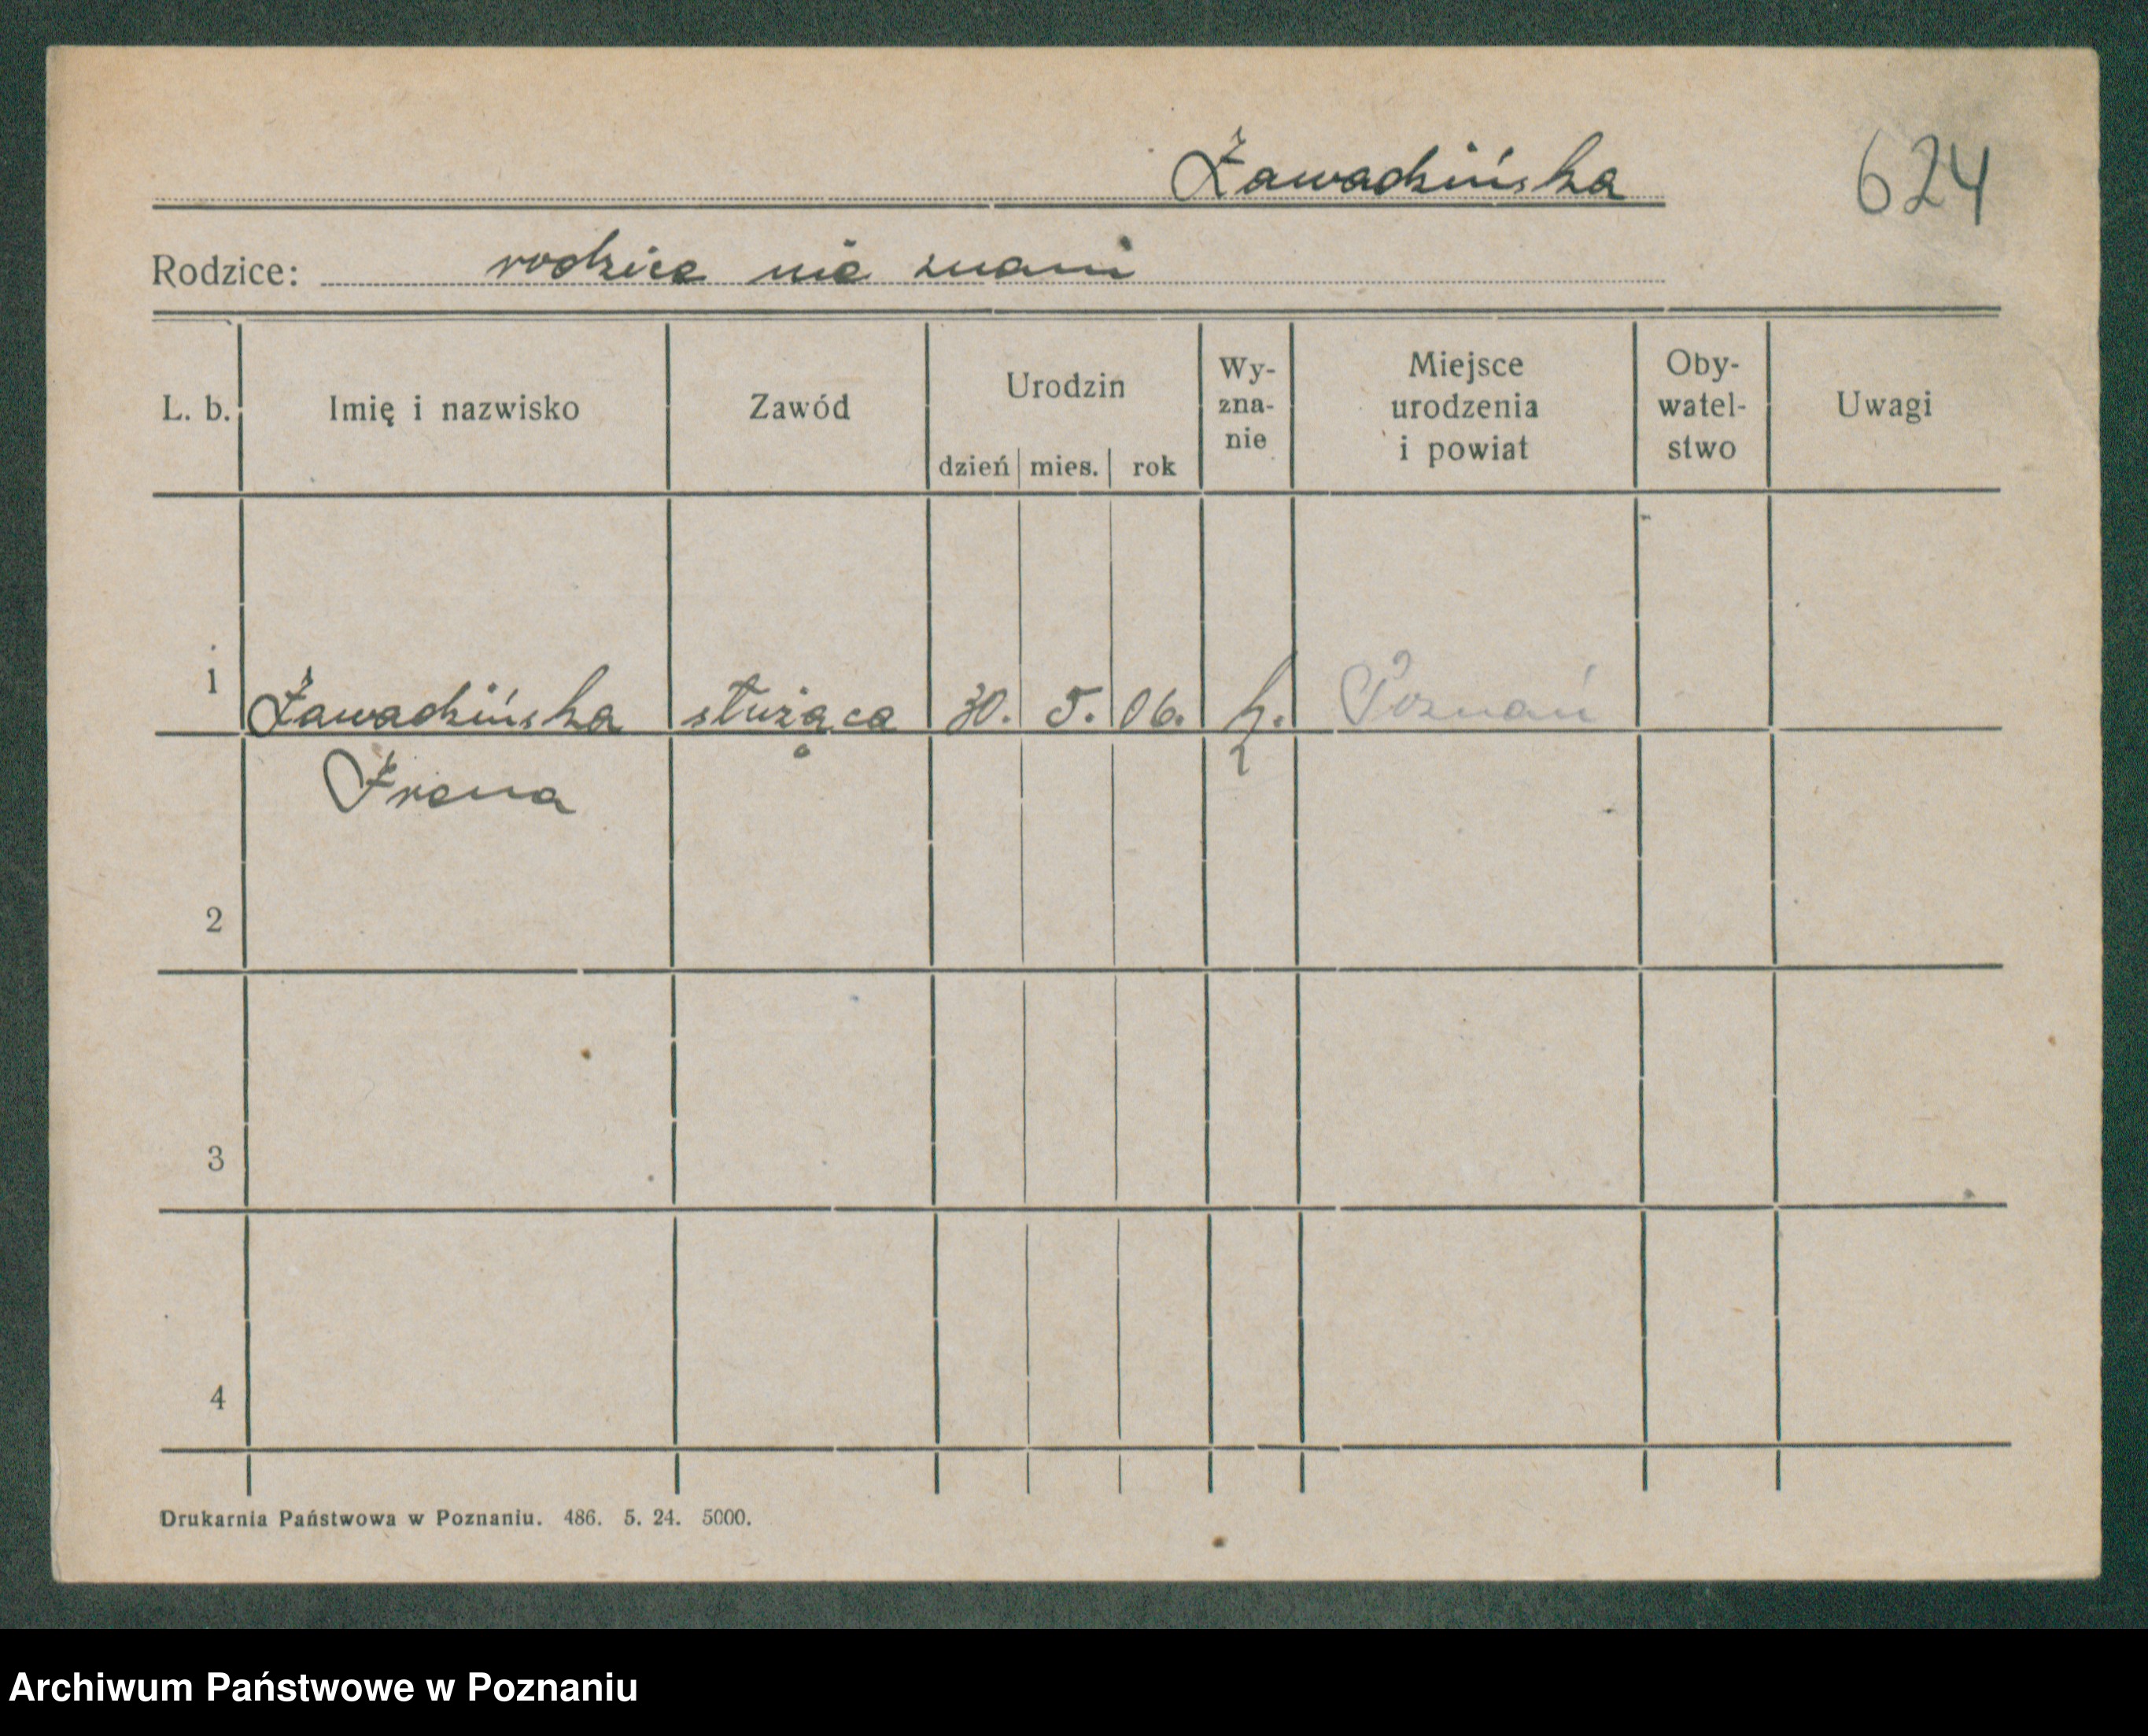 Zawadzińska
624
Rodzice: rodzice nie znani
L. b.
Imię i nazwisko
Zawód
Urodzin
dzień mies. rok
Wy-
zna-
nie
Miejsce
urodzenia
i powiat
Oby-
watel-
stwo
Uwagi
1 Zawadzińska służąca 30. 5. 06. Poznań
Irena
2
3
4
Drukarnia Państwowa w Poznaniu. 486. 5. 24. 5000.
Archiwum Państwowe w Poznaniu